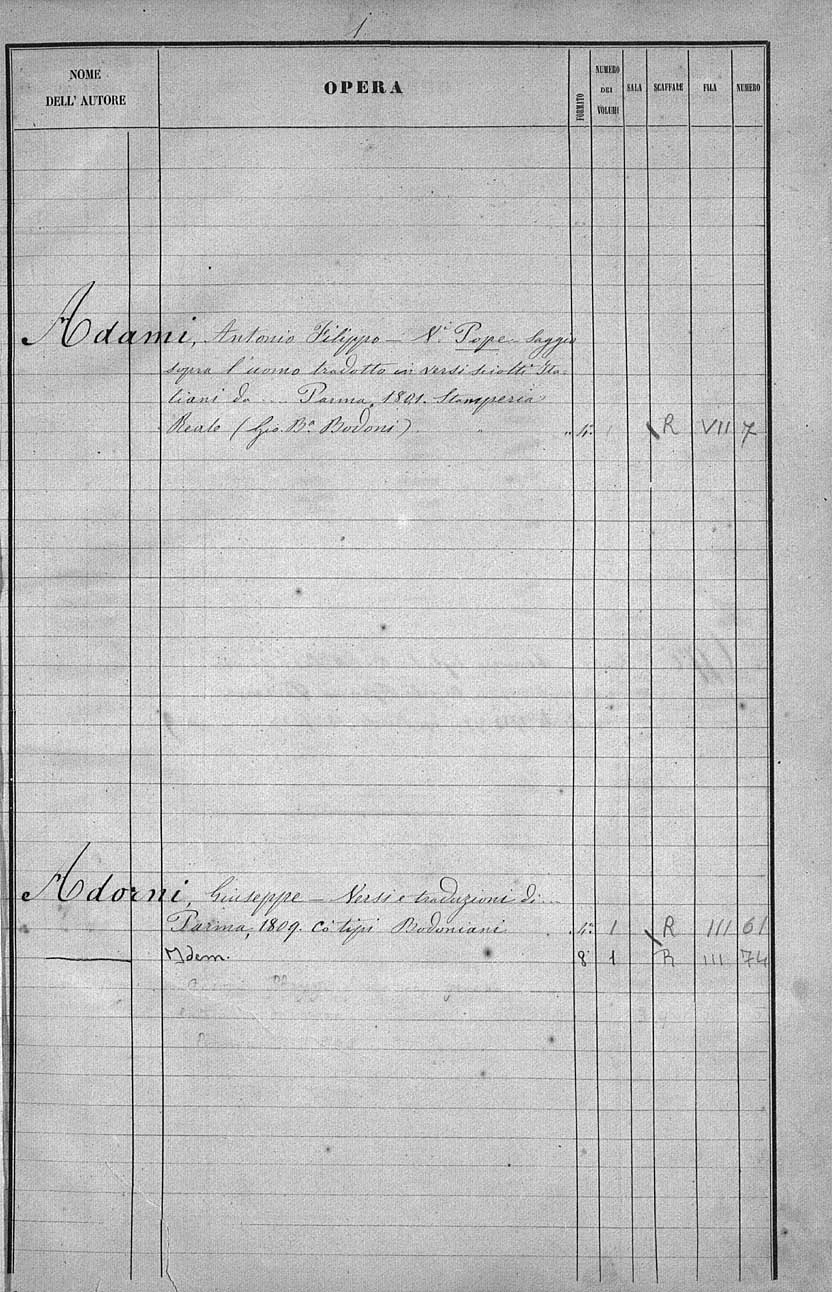 1
NOME
DELL' AUTORE
OPERA
FORMATO
NUMERO
DEI
VOLUMI
SALA
SCAFFALE
FILA
NUMERO
Adami, Antonio Filippo — V.i Pope - Saggio
sopra l'uomo tradotto in versi sciolti Ita-
liani da .... Parma, 1801. Stamperia
Reale (Gio. Ba. Bodoni) " 4.° 1 R VII 7
Adorni, Giuseppe — Versi e traduzioni di ....
Parma, 1809. co' tipi Bodoniani 4.° 1 R III 61
— Idem. 8° 1 R III 74